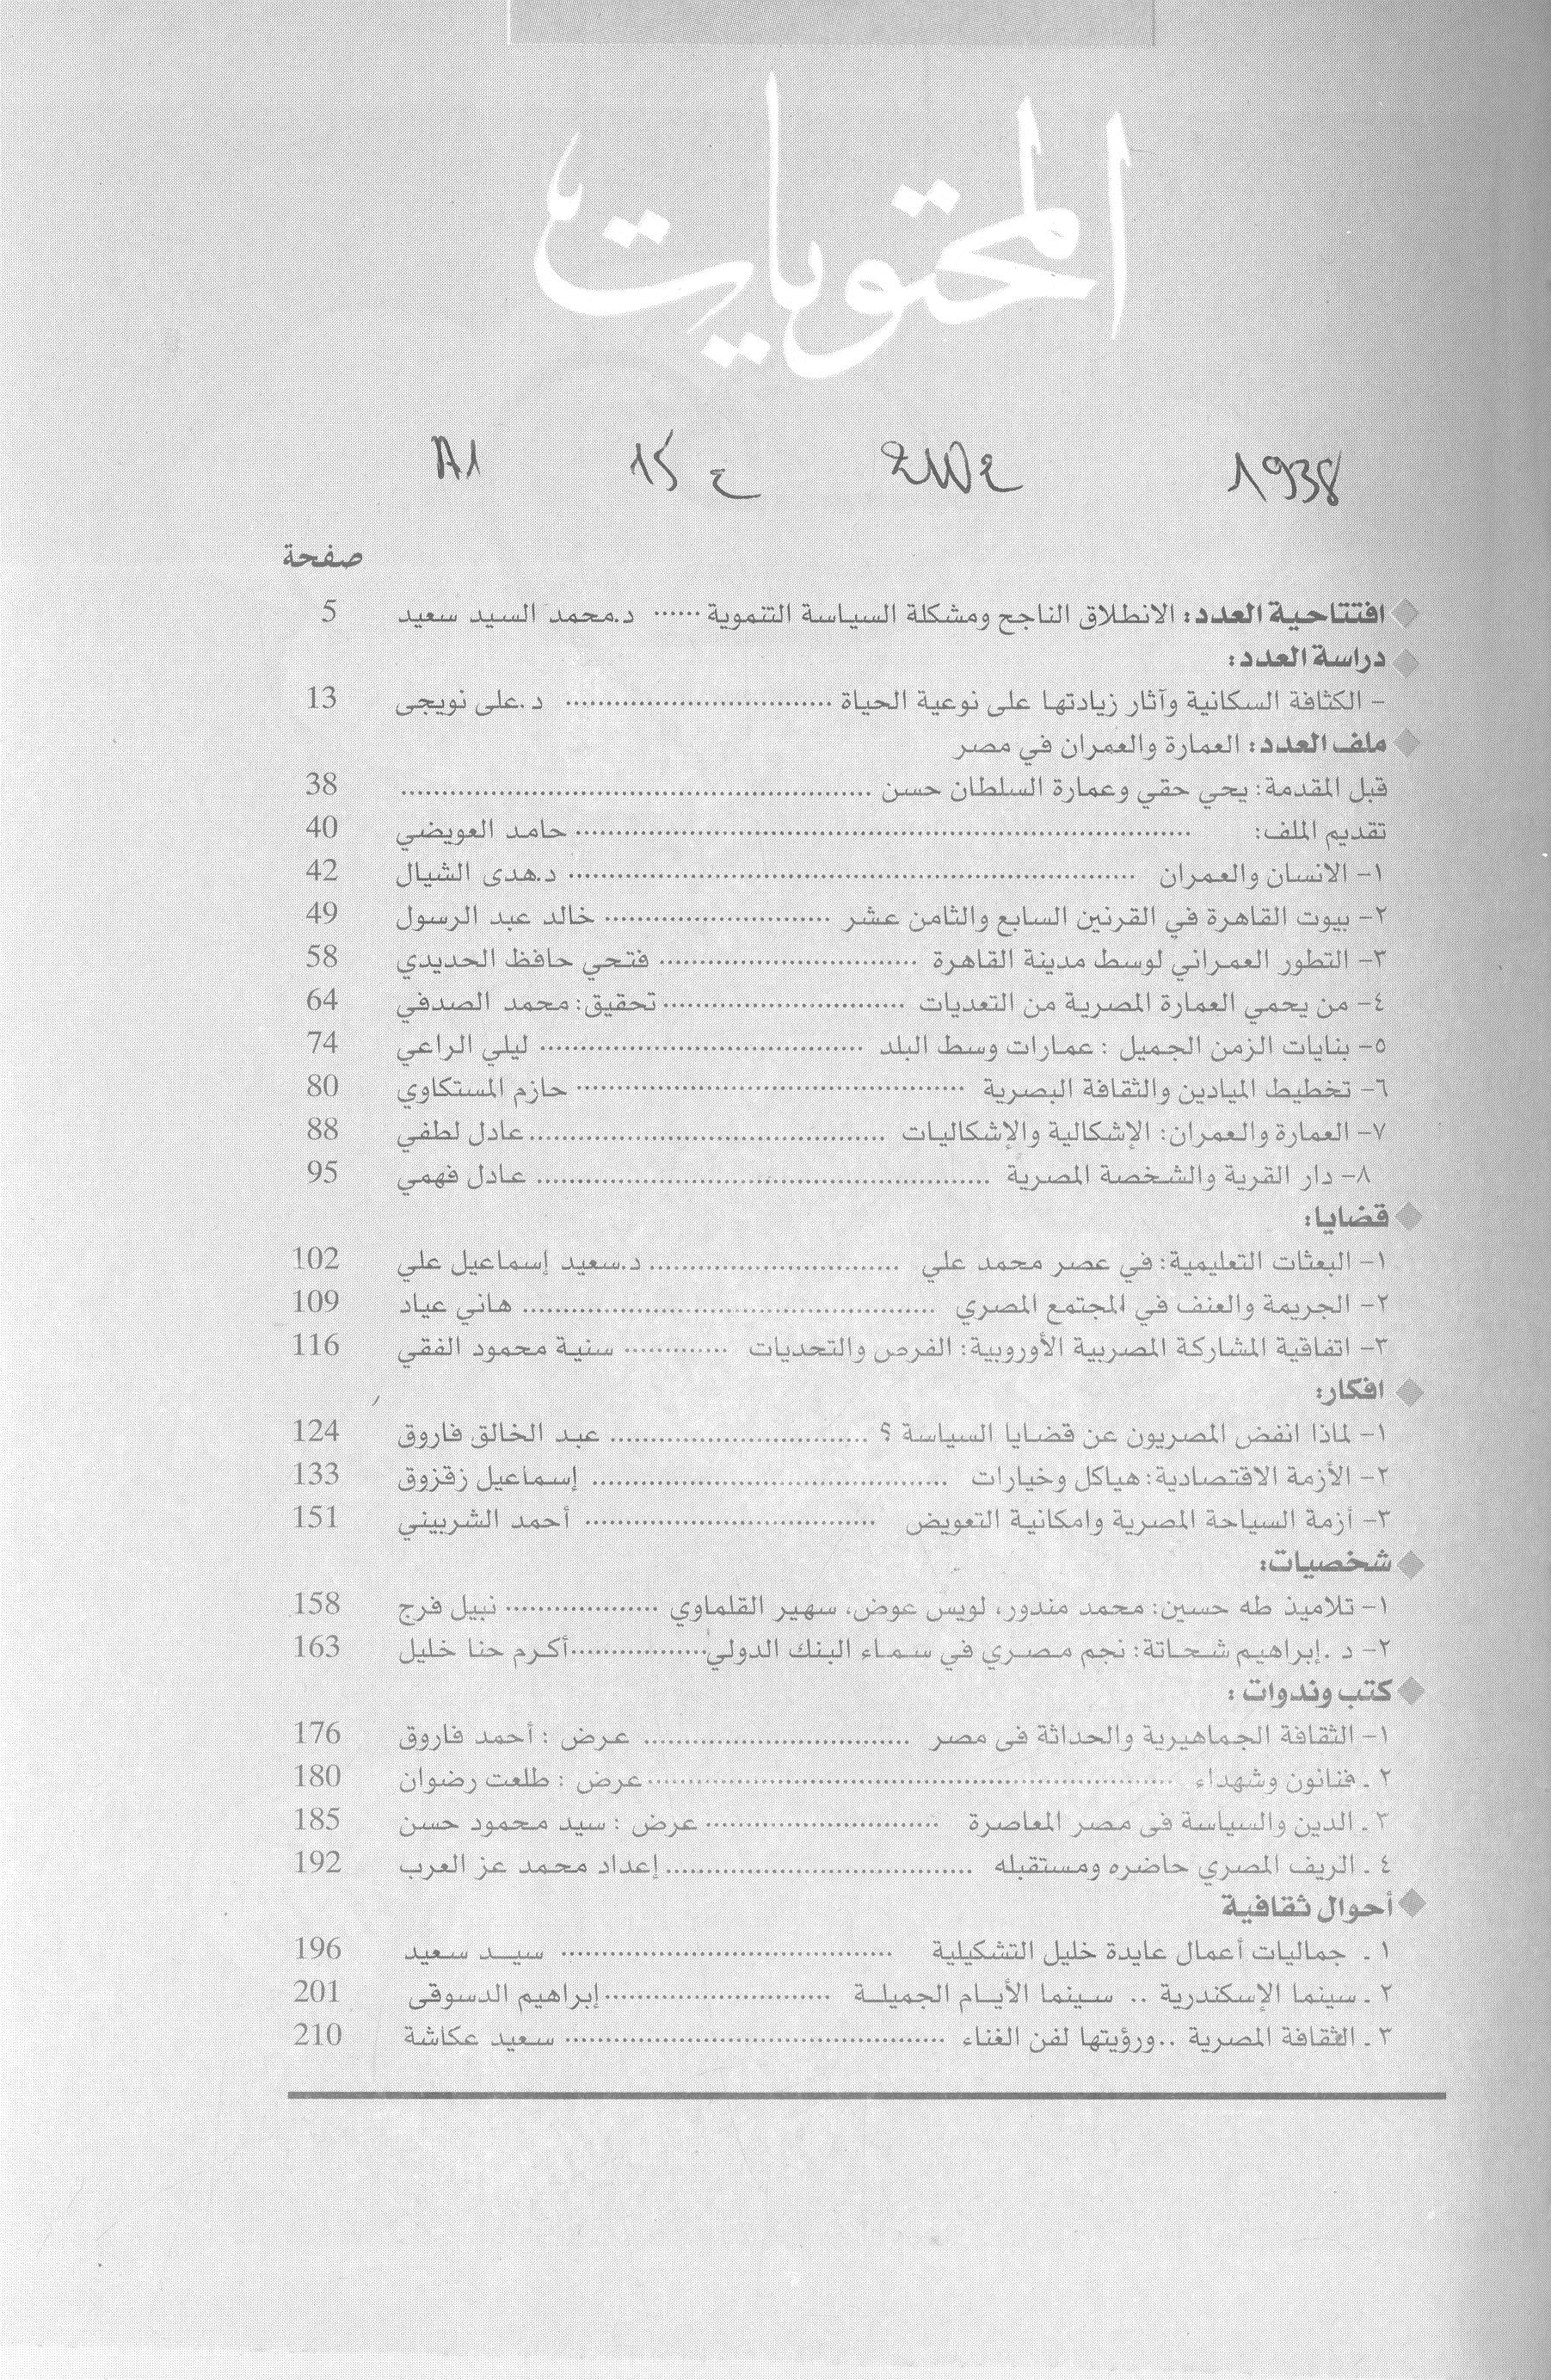 المحتويات
1938 ع 15 A1
صفحة
افتتاحية العدد: الانطلاق الناجح ومشكلة السياسة التنموية ...... د.محمد السيد سعيد 5
دراسة العدد:
- الكثافة السكانية وآثار زيادتها على نوعية الحياة ...... د.على نويجى 13
ملف العدد: العمارة والعمران في مصر
قبل المقدمة: يحي حقي وعمارة السلطان حسن ...... 38
تقديم الملف: ...... حامد العويضي 40
١- الانسان والعمران ...... د.هدى الشيال 42
٢- بيوت القاهرة في القرنين السابع والثامن عشر ...... خالد عبد الرسول 49
٣- التطور العمراني لوسط مدينة القاهرة ...... فتحي حافظ الحديدي 58
٤- من يحمي العمارة المصرية من التعديات ...... تحقيق: محمد الصدفي 64
٥- بنايات الزمن الجميل : عمارات وسط البلد ...... ليلي الراعي 74
٦- تخطيط الميادين والثقافة البصرية ...... حازم المستكاوي 80
٧- العمارة والعمران: الإشكالية والإشكاليات ...... عادل لطفي 88
٨- دار القرية والشخصة المصرية ...... عادل فهمي 95
قضايا:
١- البعثات التعليمية: في عصر محمد علي ...... د.سعيد إسماعيل علي 102
٢- الجريمة والعنف في المجتمع المصري ...... هاني عياد 109
٣- اتفاقية المشاركة المصريية الأوروبية: الفرص والتحديات ...... سنية محمود الفقي 116
افكار:
١- لماذا انفض المصريون عن قضايا السياسة ؟ ...... عبد الخالق فاروق 124
٢- الأزمة الاقتصادية: هياكل وخيارات ...... إسماعيل زقزوق 133
٣- أزمة السياحة المصرية وامكانية التعويض ...... أحمد الشربيني 151
شخصيات:
١- تلاميذ طه حسين: محمد مندور، لويس عوض، سهير القلماوي ...... نبيل فرج 158
٢- د .إبراهيم شحاتة: نجم مصري في سماء البنك الدولي ...... أكرم حنا خليل 163
كتب وندوات :
١- الثقافة الجماهيرية والحداثة فى مصر ...... عرض : أحمد فاروق 176
٢ ـ فنانون وشهداء ...... عرض : طلعت رضوان 180
٣ ـ الدين والسياسة فى مصر المعاصرة ...... عرض : سيد محمود حسن 185
٤ ـ الريف المصري حاضره ومستقبله ...... إعداد محمد عز العرب 192
أحوال ثقافية
١ ـ جماليات أعمال عايدة خليل التشكيلية ...... سيد سعيد 196
٢ ـ سينما الإسكندرية .. سينما الأيام الجميلة ...... إبراهيم الدسوقى 201
٣ ـ الثقافة المصرية ..ورؤيتها لفن الغناء ...... سعيد عكاشة 210